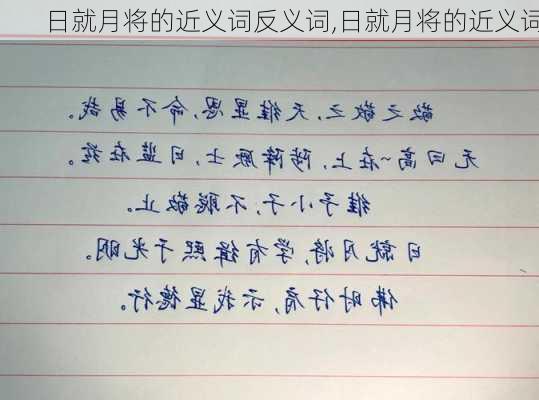 日就月将的近义词反义词,日就月将的近义词
敬之敬之,天维显思,命不易哉。
无曰高~在上,陟降厥士,日监在兹。
维予小子,不聪敬止。
日就月将,学有缉熙于光明。
佛时仔肩,示我显德行。